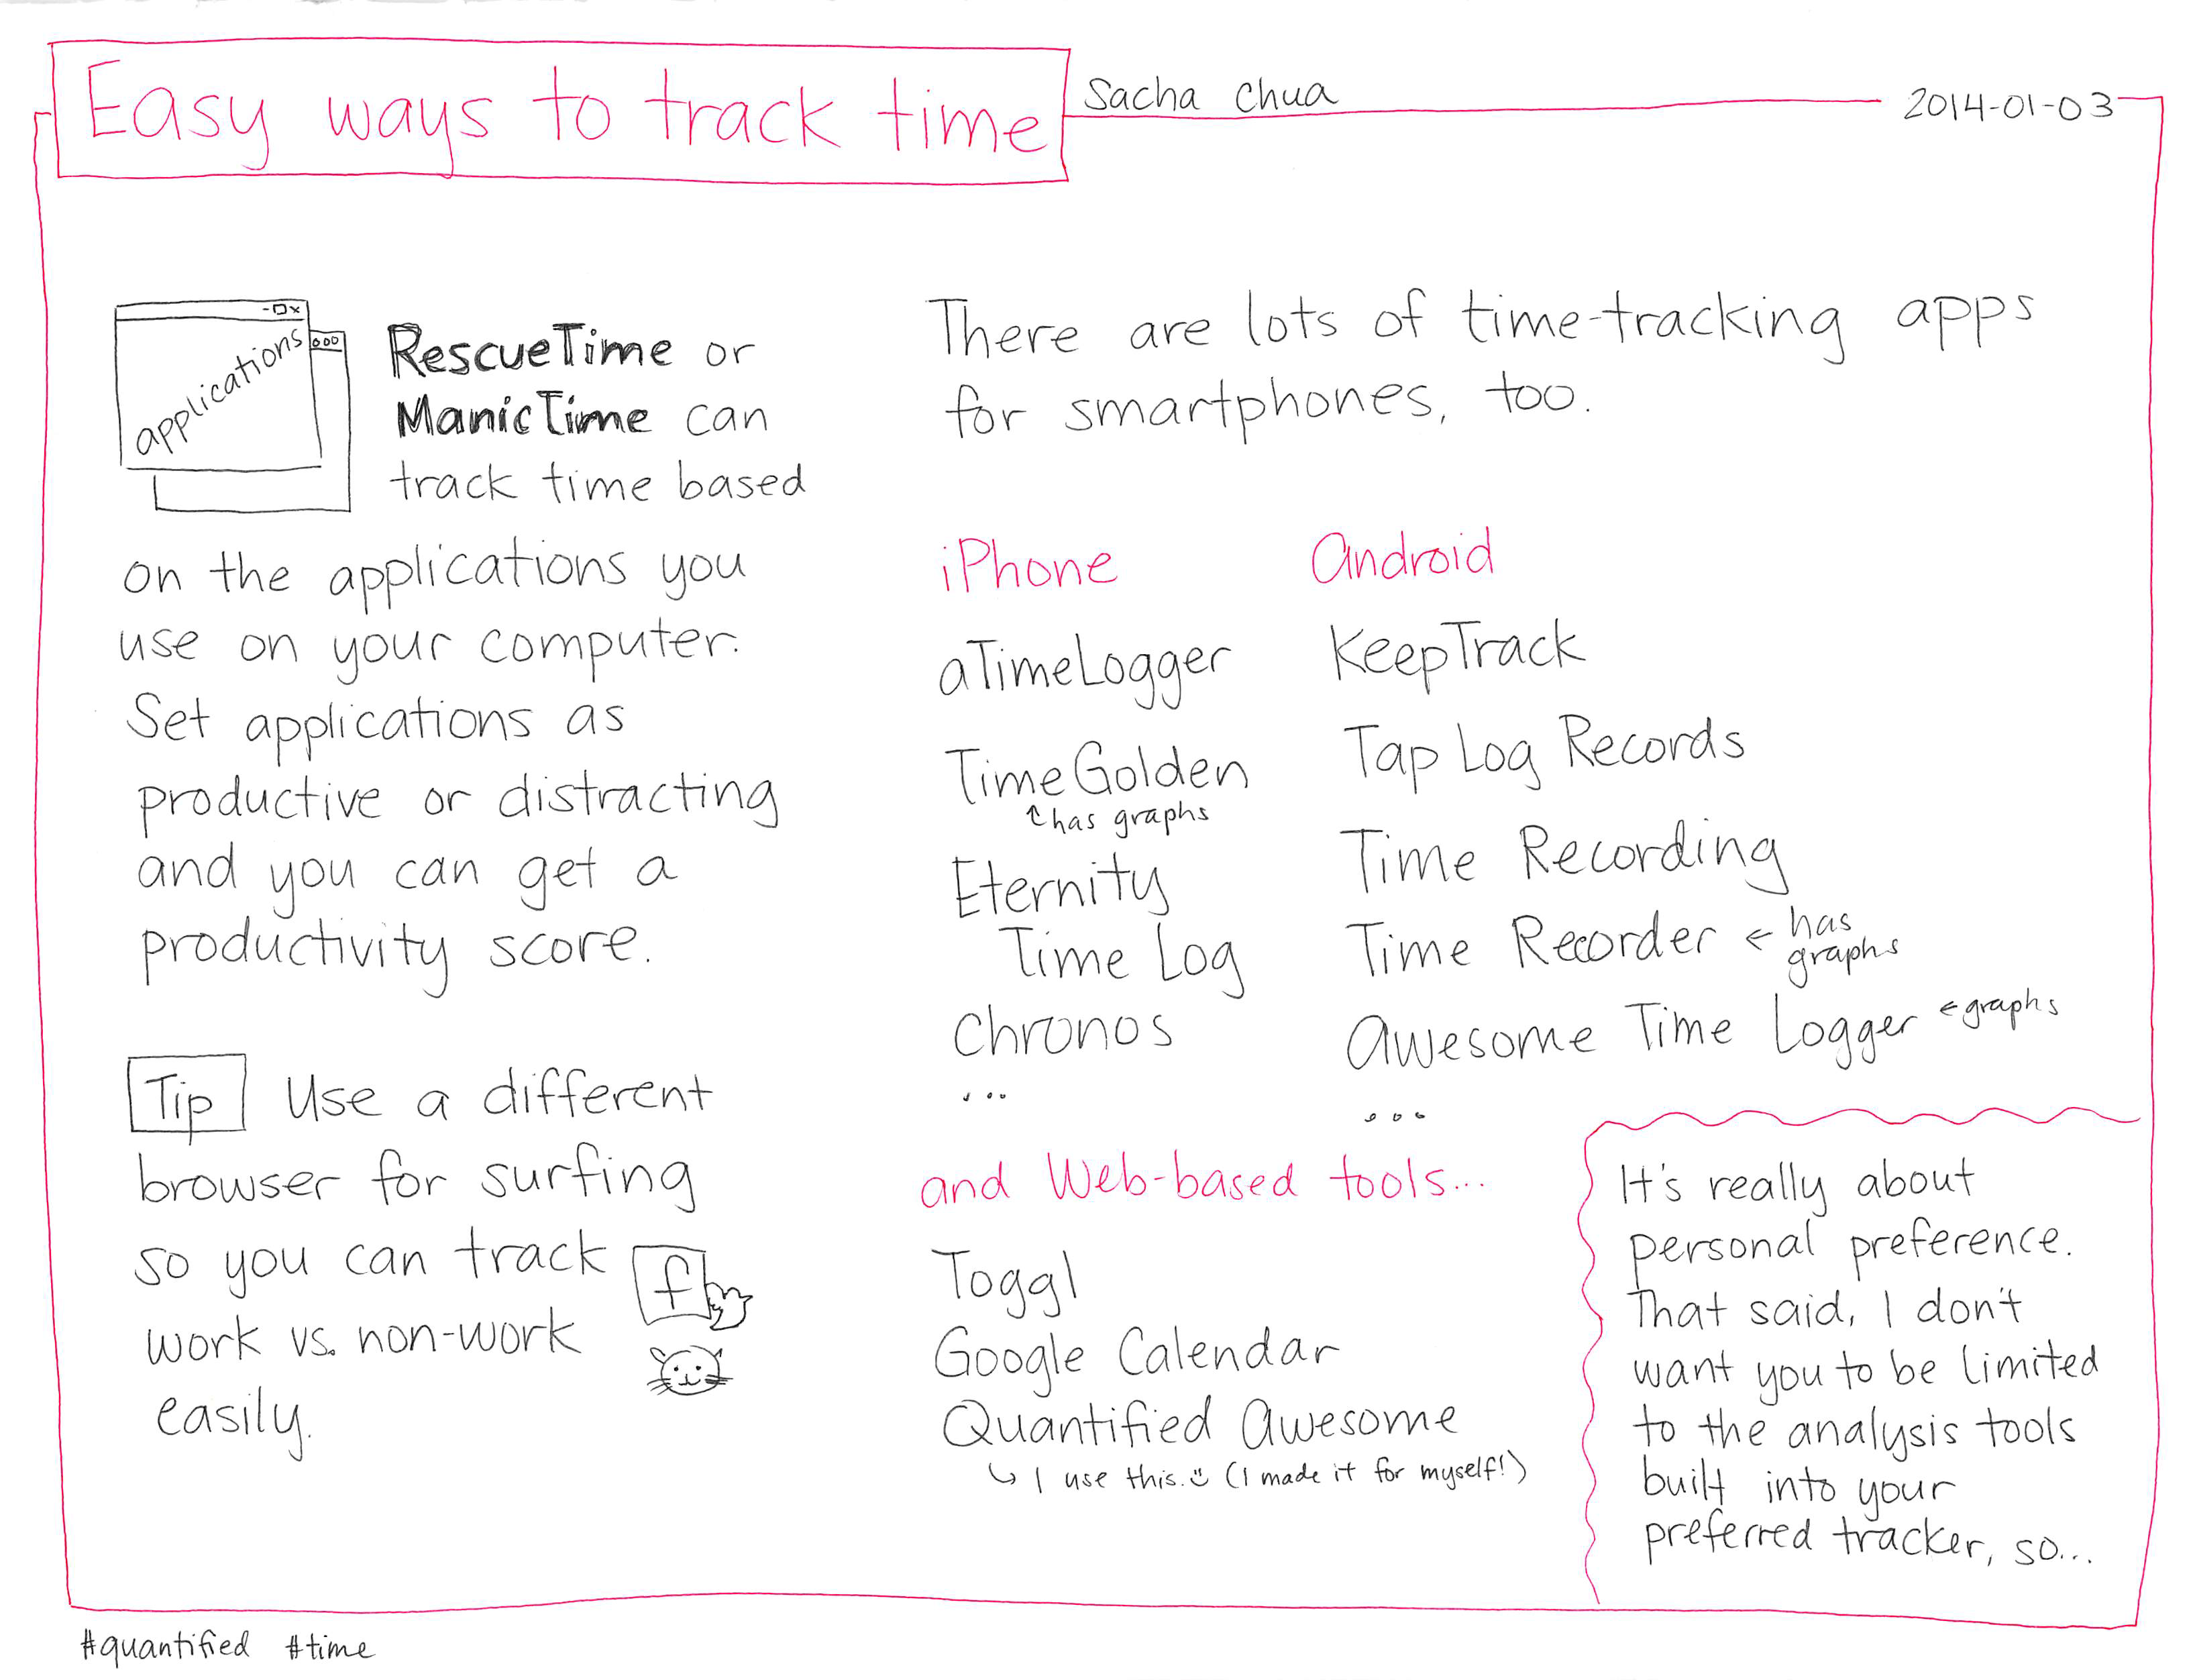 Easy ways to track time
Sacha Chua
2014-01-03
applications
RescueTime or
ManicTime can
track time based
on the applications you
use on your computer.
Set applications as
productive or distracting
and you can get a
productivity score.
Tip Use a different
browser for surfing
so you can track
work vs. non-work
easily.
f
There are lots of time-tracking apps
for smartphones, too.
iPhone
aTimeLogger
TimeGolden
↑has graphs
Eternity
Time Log
Chronos
...
Android
KeepTrack
Tap Log Records
Time Recording
Time Recorder ← has
graphs
Awesome Time Logger ← graphs
...
and Web-based tools...
Toggl
Google Calendar
Quantified Awesome
↳ I use this. :) (I made it for myself!)
It's really about
personal preference.
That said, I don't
want you to be limited
to the analysis tools
built into your
preferred tracker, so...
#quantified #time